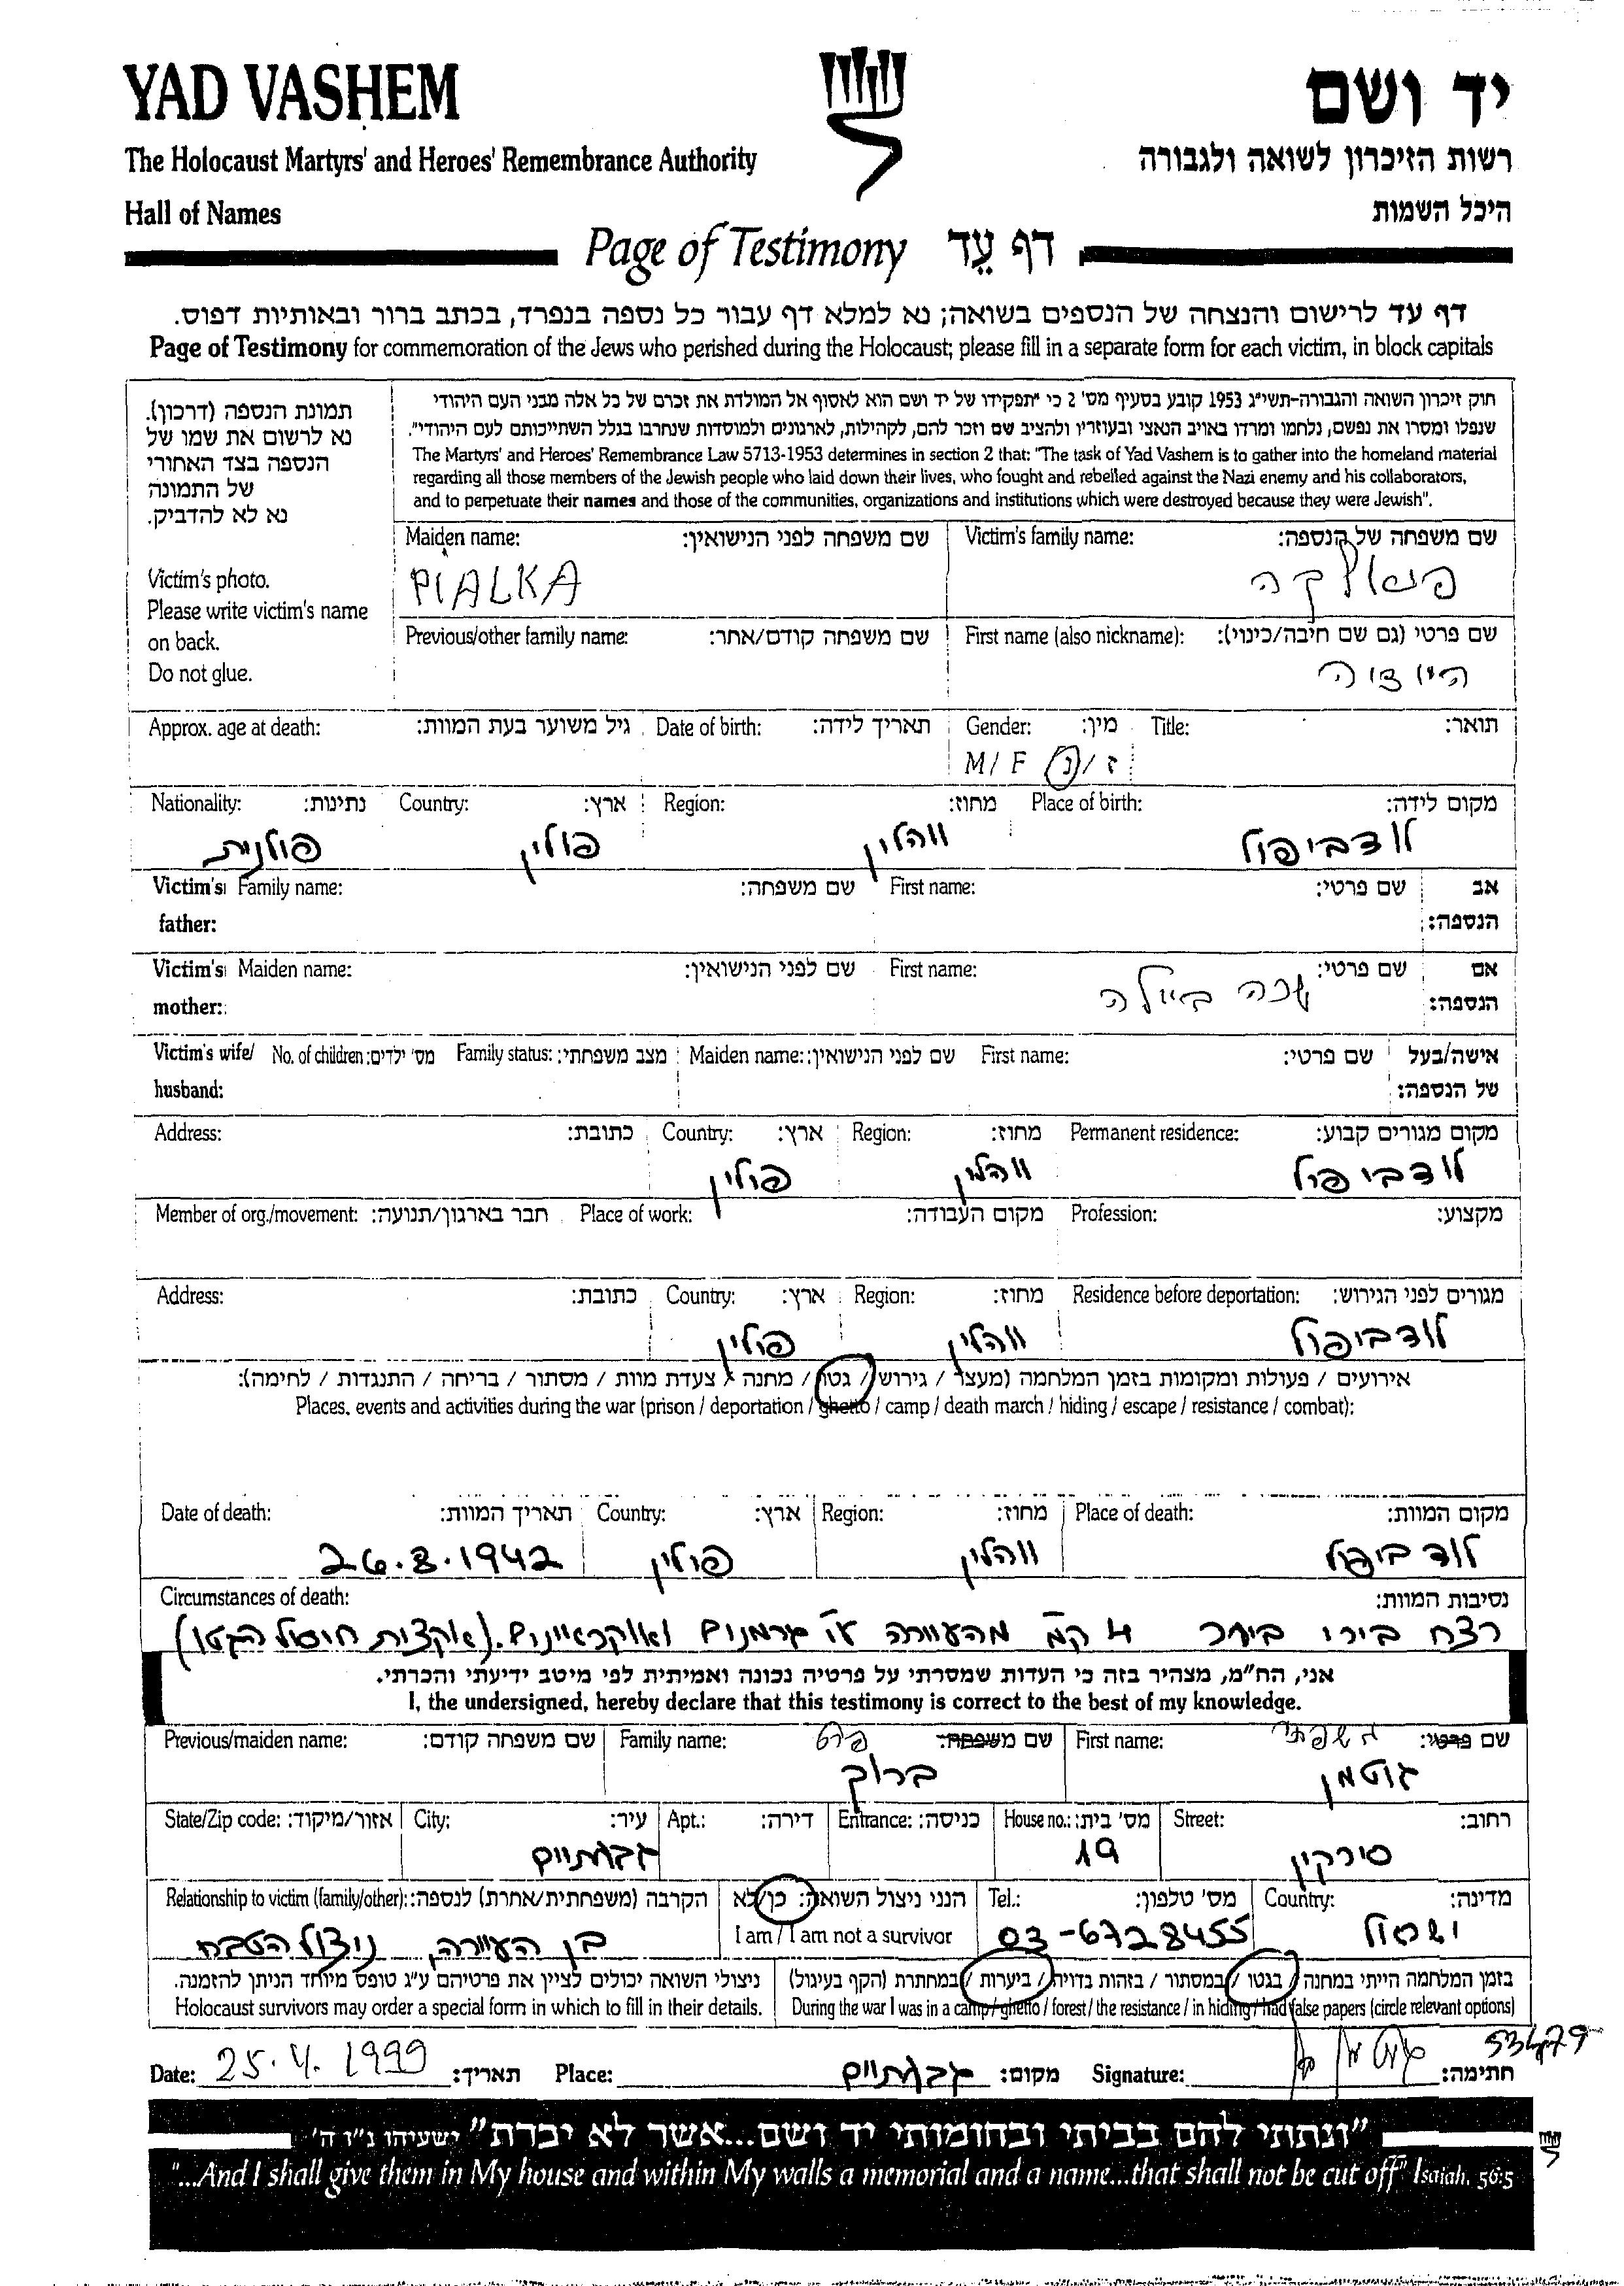 YAD VASHEM
יד ושם
The Holocaust Martyrs' and Heroes' Remembrance Authority
רשות הזיכרון לשואה ולגבורה
Hall of Names
היכל השמות
Page of Testimony דף עֵד
דף עד לרישום והנצחה של הנספים בשואה; נא למלא דף עבור כל נספה בנפרד, בכתב ברור ובאותיות דפוס.
Page of Testimony for commemoration of the Jews who perished during the Holocaust; please fill in a separate form for each victim, in block capitals
תמונת הנספה (דרכון).
נא לרשום את שמו של
הנספה בצד האחורי
של התמונה
נא לא להדביק.
Victim's photo.
Please write victim's name
on back.
Do not glue.
חוק זיכרון השואה והגבורה-תשי"ג 1953 קובע בסעיף מס' 2 כי "תפקידו של יד ושם הוא לאסוף אל המולדת את זכרם של כל אלה מבני העם היהודי
שנפלו ומסרו את נפשם, נלחמו ומרדו באויב הנאצי ובעוזריו ולהציב שם וזכר להם, לקהילות, לארגונים ולמוסדות שנחרבו בגלל השתייכותם לעם היהודי".
The Martyrs' and Heroes' Remembrance Law 5713-1953 determines in section 2 that: "The task of Yad Vashem is to gather into the homeland material
regarding all those members of the Jewish people who laid down their lives, who fought and rebelled against the Nazi enemy and his collaborators,
and to perpetuate their names and those of the communities, organizations and institutions which were destroyed because they were Jewish".
Maiden name: שם משפחה לפני הנישואין: Victim's family name: שם משפחה של הנספה:
PIALKA פיאלקה
Previous/other family name: שם משפחה קודם/אחר: First name (also nickname): שם פרטי (גם שם חיבה/כינוי):
Approx. age at death: גיל משוער בעת המוות: Date of birth: תאריך לידה: Gender: מין: Title: תואר:
M/ F ז/נ
Nationality: נתינות: Country: ארץ: Region: מחוז: Place of birth: מקום לידה:
פולנית פולין ווהלין לודביפול
Victim's father: Family name: שם משפחה: First name: שם פרטי: אב הנספה:
Victim's mother: Maiden name: שם לפני הנישואין: First name: שם פרטי: אם הנספה:
ביילה
Victim's wife/ husband: No. of children: מס' ילדים: Family status: מצב משפחתי: Maiden name: שם לפני הנישואין: First name: שם פרטי: אישה/בעל של הנספה:
Address: כתובת: Country: ארץ: Region: מחוז: Permanent residence: מקום מגורים קבוע:
פולין ווהלין לודביפול
Member of org./movement: חבר בארגון/תנועה: Place of work: מקום העבודה: Profession: מקצוע:
Address: כתובת: Country: ארץ: Region: מחוז: Residence before deportation: מגורים לפני הגירוש:
פולין ווהלין לודביפול
אירועים / פעולות ומקומות בזמן המלחמה (מעצר / גירוש / גטו / מחנה / צעדת מוות / מסתור / בריחה / התנגדות / לחימה):
Places, events and activities during the war (prison / deportation / ghetto / camp / death march / hiding / escape / resistance / combat):
Date of death: תאריך המוות: Country: ארץ: Region: מחוז: Place of death: מקום המוות:
26.8.1942 פולין ווהלין לודביפול
Circumstances of death: נסיבות המוות:
רצח בירי ביער 4 ק"מ מהעיירה ע"י גרמנים ואוקראיינים. (אקצית חיסול הגטו)
אני, הח"מ, מצהיר בזה כי העדות שמסרתי על פרטיה נכונה ואמיתית לפי מיטב ידיעתי והכרתי.
I, the undersigned, hereby declare that this testimony is correct to the best of my knowledge.
Previous/maiden name: שם משפחה קודם: Family name: שם משפחה: פרטי First name: שם פרטי: משפחתי
ברוך גוטמן
State/Zip code: אזור/מיקוד: City: עיר: Apt.: דירה: Entrance: כניסה: House no.: מס' בית: Street: רחוב:
גבעתיים 19 סירקין
Relationship to victim (family/other): הקרבה (משפחתית/אחרת) לנספה: הנני ניצול השואה: כן/לא Tel.: מס' טלפון: Country: מדינה:
I am / I am not a survivor
בן העיירה, ניצול הטבח 03-6728455 ישראל
ניצולי השואה יכולים לציין את פרטיהם ע"ג טופס מיוחד הניתן להזמנה. בזמן המלחמה הייתי במחנה / בגטו / במסתור / בזהות בדויה / ביערות / במחתרת (הקף בעיגול)
Holocaust survivors may order a special form in which to fill in their details. During the war I was in a camp / ghetto / forest / the resistance / in hiding / had false papers (circle relevant options)
53479
Date: 25.4.1999 תאריך: Place: גבעתיים מקום: Signature: חתימה:
"ונתתי להם בביתי ובחומותי יד ושם...אשר לא יכרת" ישעיהו נ"ו ה'
"...And I shall give them in My house and within My walls a memorial and a name...that shall not be cut off" Isaiah, 56:5